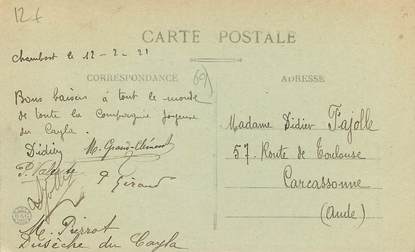 12f
CARTE POSTALE
Chambost le 12-2-21
CORRESPONDANCE
ADRESSE
Bons baisers à tout le monde
de toute la Compagnie Joyeuse
du Cayla.
Didier
M. Grand-Clément
P. Valente
P Giraud
M. Pierrot
du Cayla
Madame Didier Fajolle
57. Route de Toulouse
Carcassonne
(Aude)